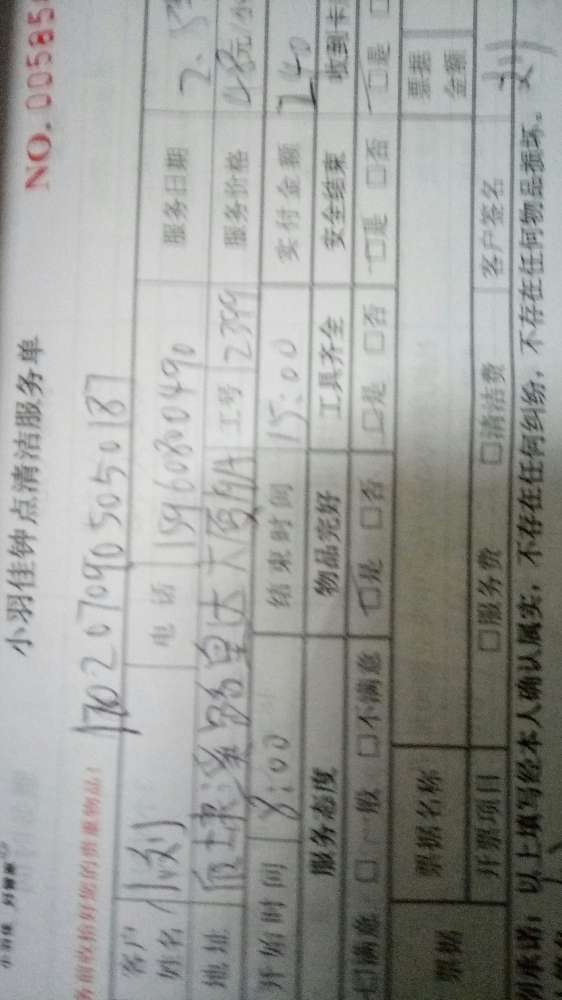 小羽佳钟点清洁服务单
NO.00585
170207090505018?
客户姓名 小刘 电话 15960800490 服务日期 2.
地址 工号 2399 服务价格 48元/小
开始时间 8:00 结束时间 15:00 实付金额 240
服务态度 物品完好 工具齐全 安全结束 收到卡
满意 □一般 □不满意 □是 □否 □是 □否 □是 □否 □是 □
票据 票据名称 票据金额
开票项目 □服务费 □清洁费 客户签名 刘
承诺：以上填写经本人确认属实，不存在任何纠纷，不存在任何物品损坏。